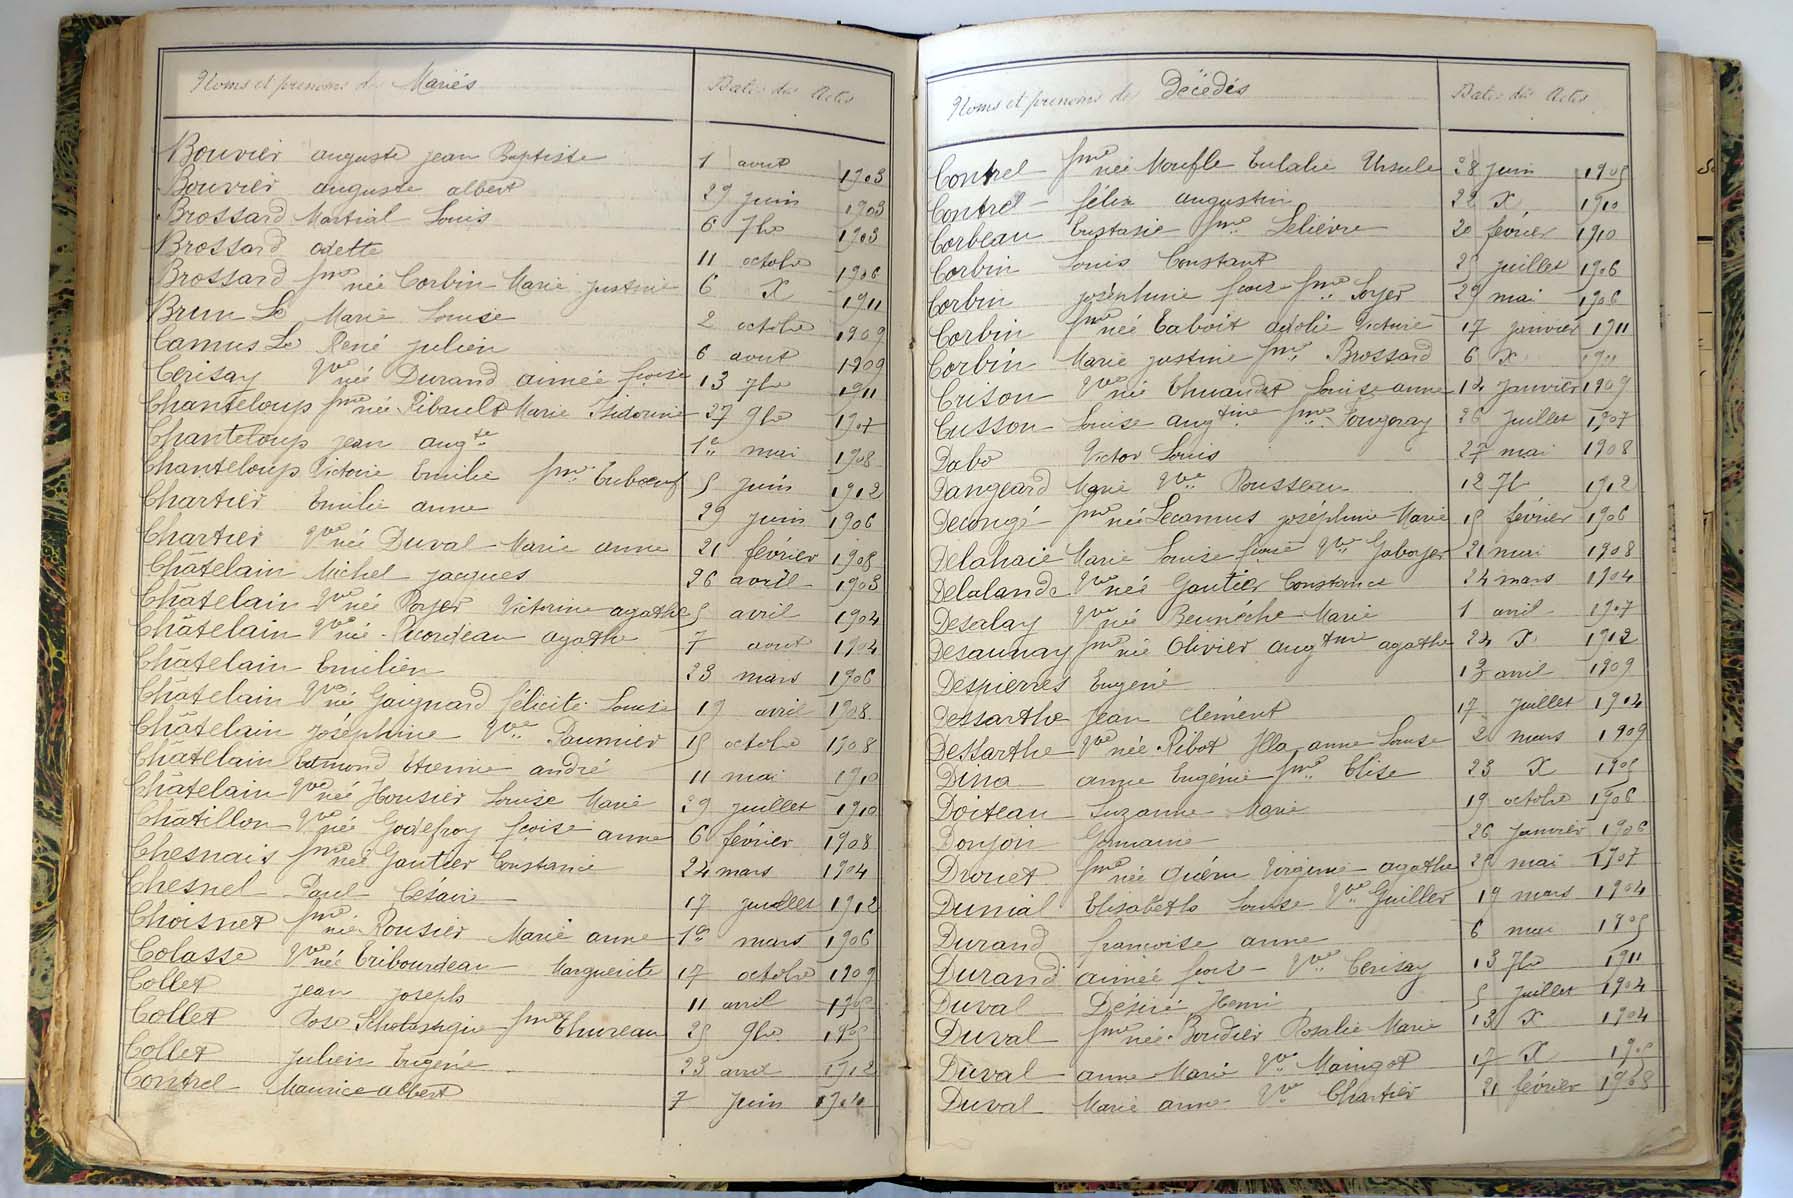 Noms et prénoms des Mariés Dates des Actes
Bouvier auguste jean Baptiste 1 aout 1903
Bouvier auguste albert 29 juin 1903
Brossard Martial Louis 6 7bre 1903
Brossard odette 11 octobre 1906
Brossard fme née Corbin Marie justine 6 X 1911
Brun Le Marie Louise 2 octobre 1909
Camus Le René julien 6 aout 1909
Cerisay Vve née Durand aimée fçoise 13 7bre 1911
Chanteloup fme née Ribault Marie Isidorine 27 9bre 1907
Chanteloup jean augte 1er mai 1908
Chanteloup Victoire Emilie fme Eubœuf 5 juin 1912
Chartier Emilie anne 29 juin 1906
Chartier Vve née Duval Marie anne 21 février 1908
Châtelain Michel jacques 26 avril 1903
Châtelain Vve née Royer Victorine agathe 5 avril 1904
Châtelain Vve née Ricordeau agathe 7 aout 1904
Châtelain Emilien 23 mars 1906
Châtelain Vve née Gaignard félicité Louise 19 avril 1908
Châtelain joséphine Vve Paumier 15 octobre 1908
Châtelain Edmond Etienne andré 11 mai 1910
Châtelain Vve née Housier Louise Marie 29 juillet 1910
Chatillon Vve née Godefroy fçoise anne 6 février 1908
Chesnais fme née Gautier Constance 24 mars 1904
Chesnel Paul Césaire 17 juillet 1912
Choisnet fme née Rousier Marie anne 1er mars 1906
Colasse Vve née Tribourdeau Marguerite 17 octobre 1909
Collet jean joseph 11 avril 1905
Collet Rose Scholastique fme Thureau 25 9bre 1905
Collet julien Eugène 23 avril 1912
Contrel Maurice albert 7 juin
Noms et prénoms des Décédés Dates des Actes
Contrel fme née Moufle Eulalie Ursule 28 juin 1905
Contrel félix augustin 22 X 1910
Corbeau Eustasie fme Lelièvre 20 février 1910
Corbin Louis Constant 25 juillet 1906
Corbin joséphine fçoise fme Soyer 29 mai 1906
Corbin fme née Taboit Victoire 17 janvier 1911
Corbin Marie justine fme Brossard 6 X 1911
Crison Vve née Thuandet Louise anne 14 janvier 1909
Cusson Louise augtine fme Fougeray 26 juillet 1907
Dabo Victor Louis 27 mai 1908
Dangeard Marie Vve Rousseau 12 7b 1912
Decongé fme née Lecamus joséphine Marie 15 février 1906
Delahaie Marie Louise fçoise Vve Gaboyer 21 mai 1908
Delalande Vve née Gautier Constance 24 mars 1904
Desalay Vve née Beunèche Marie 1 avril 1907
Desaunay fme née Olivier augtine agathe 24 X 1912
Despierres Eugène 13 avril 1909
Dessarthe jean clément 17 juillet 1904
Dessarthe Vve née Ribot anne Louise 2 mars 1909
Dina anne Eugénie fme Elise 23 X 1905
Doiteau Suzanne Marie 19 octobre 1906
Donjon Germaine 26 janvier 1906
Drouet fme née Guérin Virginie agathe 25 mai 1907
Dunial Elisabeth Louise Vve Guiller 19 mars 1904
Durand françoise anne 6 mai 1905
Durand aimée fçoise Vve Cerisay 13 7bre 1911
Duval Désiré Henri 5 juillet 1904
Duval fme née Bordier Rosalie Marie 13 X 1904
Duval anne Marie Vve Maingot 17 X
Duval Marie anne Vve Chartier 21 février 1908